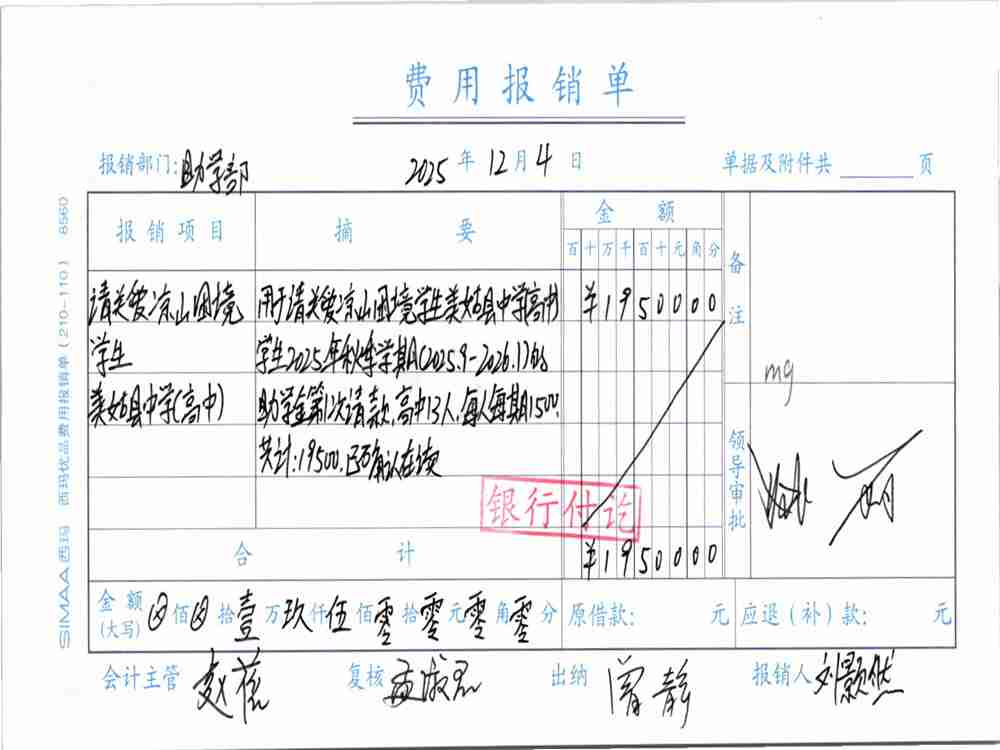 费用报销单
报销部门:助学部 2025年12月4日 单据及附件共 页
报销项目 摘要 金额 备注
百十万千百十元角分
请关爱凉山困境 用于请关爱凉山困境学生美姑县中学(高中) ¥1950000
学生 学生2025年秋季学期(2025.9-2026.1)的
美姑县中学(高中) 助学金第1次请款,高中13人,每人每期1500,
共计:19500.已确认在读
mg
领导审批
银行付讫
合计 ¥1950000
金额(大写) 佰 拾壹万玖仟伍佰零拾零元零角零分 原借款: 元 应退(补)款: 元
会计主管 赵蓓 复核 孟淑君 出纳 曾静 报销人 刘颢然
SIMAA西玛 西玛优品费用报销单(210-110) 8560